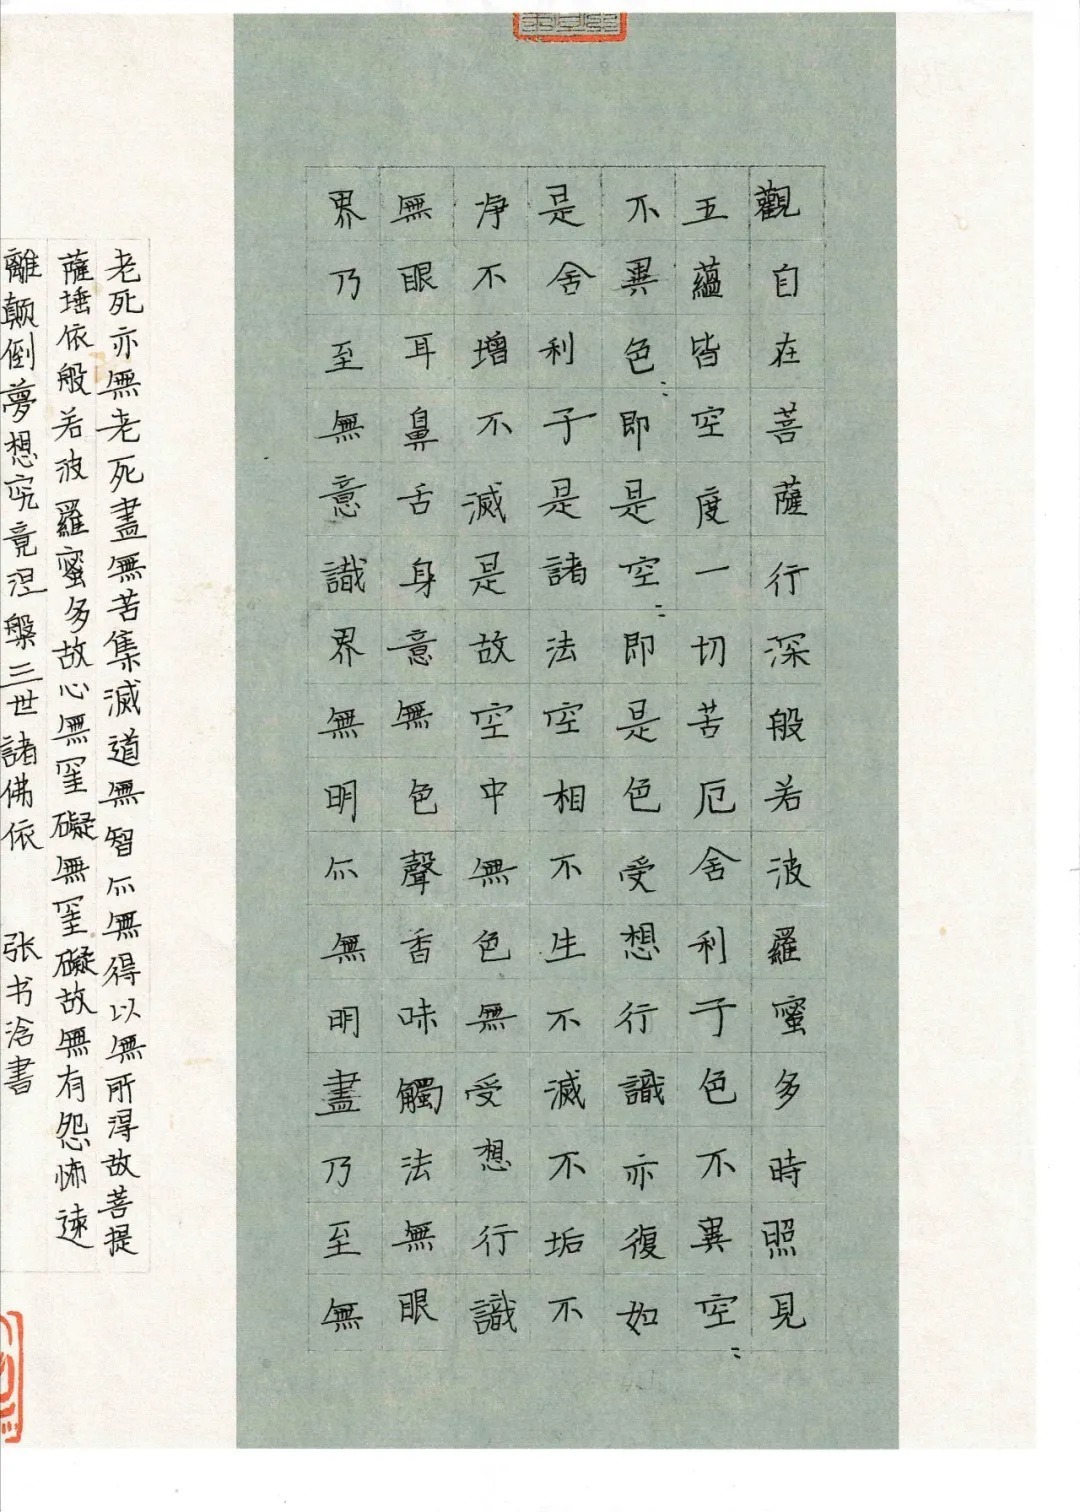 觀自在菩薩行深般若波羅蜜多時照見
五蘊皆空度一切苦厄舍利子色不異空〻
不異色〻即是空〻即是色受想行識亦復如
是舍利子是諸法空相不生不滅不垢不
净不增不滅是故空中無色無受想行識
無眼耳鼻舌身意無色聲香味觸法無眼
界乃至無意識界無明亦無明盡乃至無
老死亦無老死盡無苦集滅道無智亦無得以無所得故菩提
薩埵依般若波羅蜜多故心無罣礙無罣礙故無有怨怖遠
離颠倒夢想究竟涅槃三世諸佛依 张书浛書